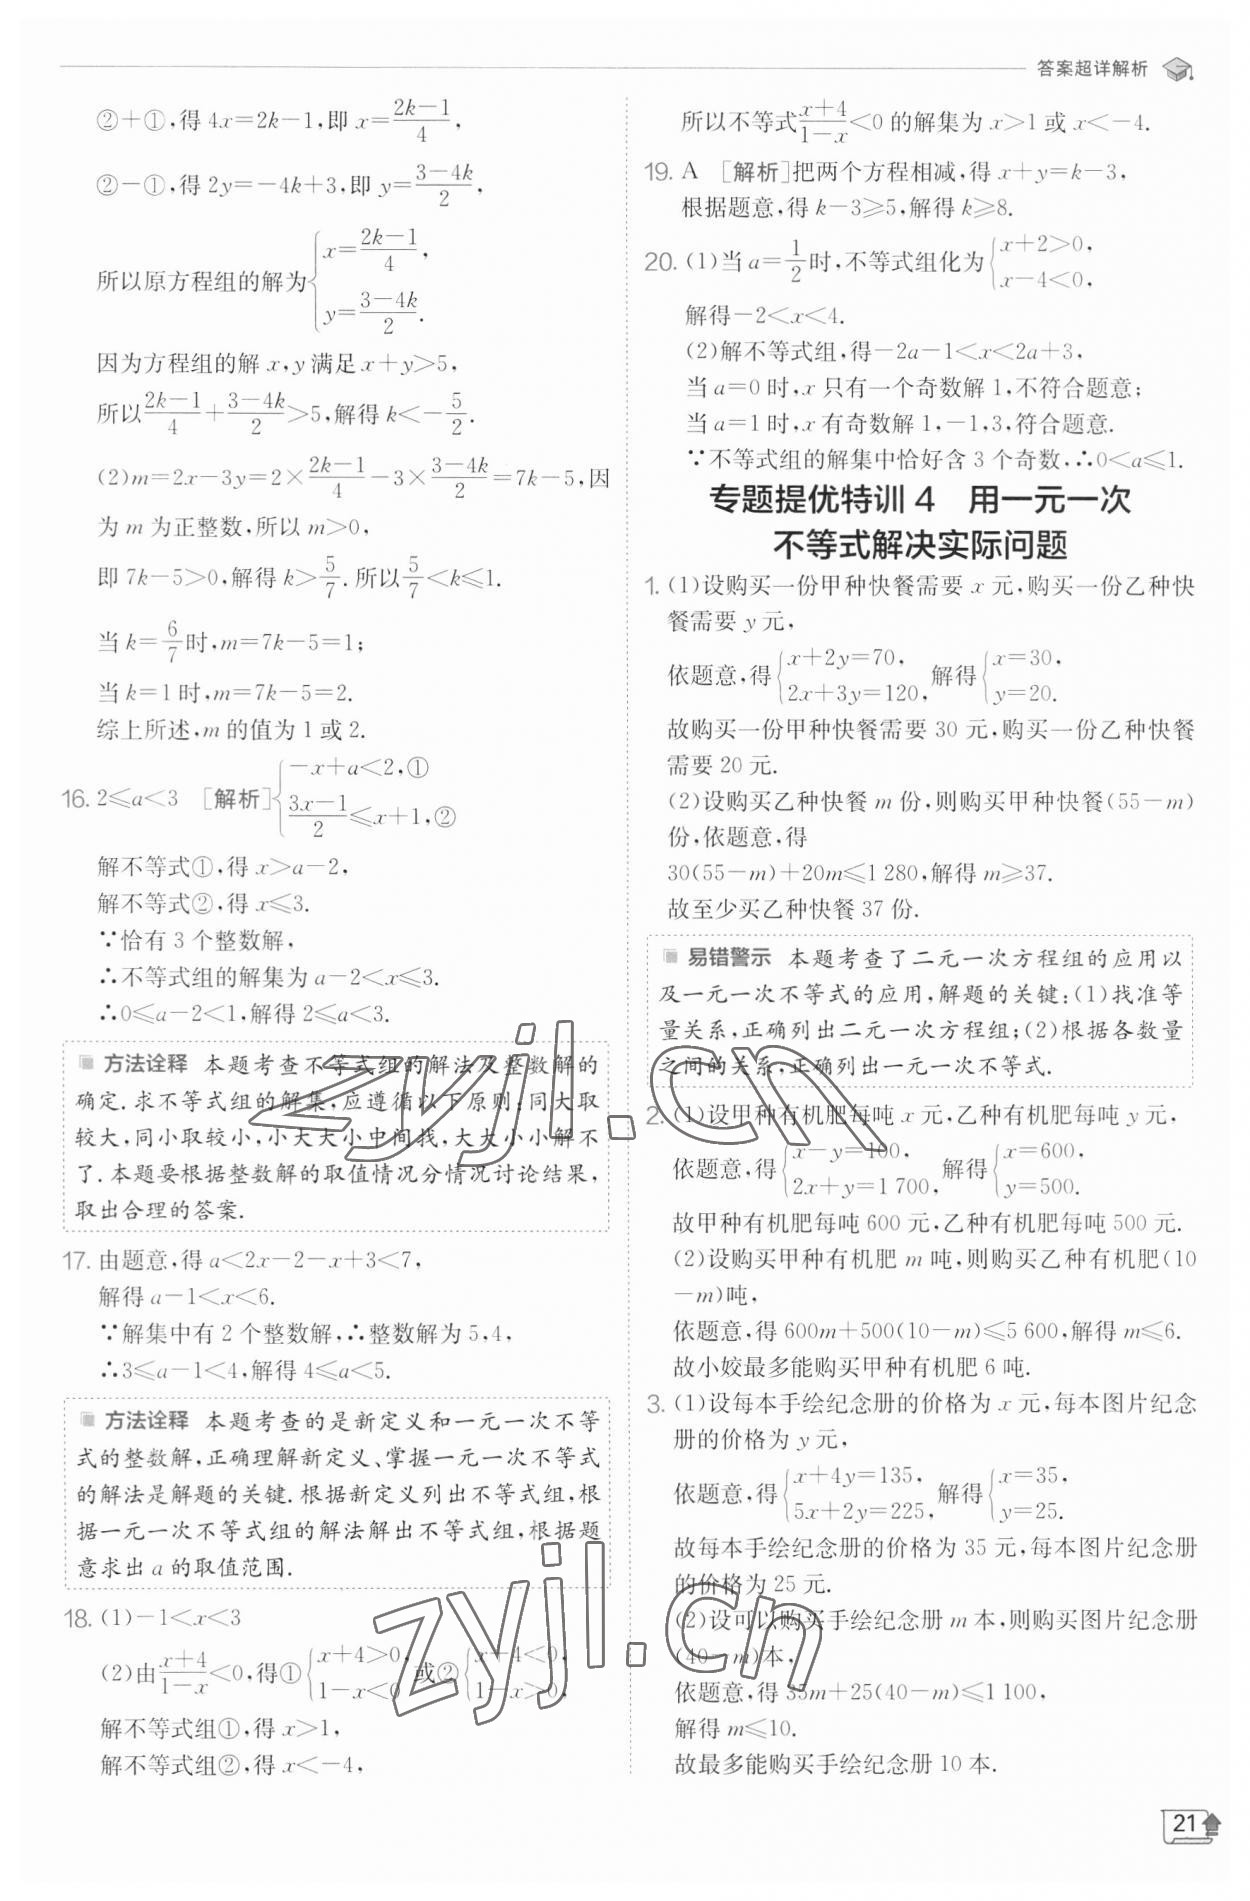 答案超详解析
②+①,得 4x=2k-1,即 x=\frac{2k-1}{4},
②-①,得 2y=-4k+3,即 y=\frac{3-4k}{2},
所以原方程组的解为{x=\frac{2k-1}{4}, y=\frac{3-4k}{2}.
因为方程组的解 x,y 满足 x+y>5,
所以\frac{2k-1}{4}+\frac{3-4k}{2}>5,解得 k<-\frac{5}{2}.
(2)m=2x-3y=2×\frac{2k-1}{4}-3×\frac{3-4k}{2}=7k-5,因
为 m 为正整数,所以 m>0,
即 7k-5>0,解得 k>\frac{5}{7}.所以\frac{5}{7}<k≤1.
当 k=\frac{6}{7}时,m=7k-5=1;
当 k=1 时,m=7k-5=2.
综上所述,m 的值为 1 或 2.
16. 2≤a<3 [解析]{-x+a<2,① \frac{3x-1}{2}≤x+1,②
解不等式①,得 x>a-2,
解不等式②,得 x≤3.
∵恰有 3 个整数解,
∴不等式组的解集为 a-2<x≤3.
∴0≤a-2<1,解得 2≤a<3.
方法诠释 本题考查不等式组的解法及整数解的
确定.求不等式组的解集,应遵循以下原则:同大取
较大,同小取较小,小大大小中间找,大大小小解不
了.本题要根据整数解的取值情况分情况讨论结果,
取出合理的答案.
17. 由题意,得 a<2x-2-x+3<7,
解得 a-1<x<6.
∵解集中有 2 个整数解,∴整数解为 5,4,
∴3≤a-1<4,解得 4≤a<5.
方法诠释 本题考查的是新定义和一元一次不等
式的整数解,正确理解新定义、掌握一元一次不等式
的解法是解题的关键.根据新定义列出不等式组,根
据一元一次不等式组的解法解出不等式组,根据题
意求出 a 的取值范围.
18. (1)-1<x<3
(2)由\frac{x+4}{1-x}<0,得①{x+4>0, 1-x<0 或②{x+4<0, 1-x>0,
解不等式组①,得 x>1,
解不等式组②,得 x<-4,
所以不等式\frac{x+4}{1-x}<0 的解集为 x>1 或 x<-4.
19. A [解析]把两个方程相减,得 x+y=k-3,
根据题意,得 k-3≥5,解得 k≥8.
20. (1)当 a=\frac{1}{2}时,不等式组化为{x+2>0, x-4<0,
解得-2<x<4.
(2)解不等式组,得-2a-1<x<2a+3,
当 a=0 时,x 只有一个奇数解 1,不符合题意;
当 a=1 时,x 有奇数解 1,-1,3,符合题意.
∵不等式组的解集中恰好含 3 个奇数,∴0<a≤1.
专题提优特训 4 用一元一次
不等式解决实际问题
1. (1)设购买一份甲种快餐需要 x 元,购买一份乙种快
餐需要 y 元,
依题意,得{x+2y=70, 2x+3y=120, 解得{x=30, y=20.
故购买一份甲种快餐需要 30 元,购买一份乙种快餐
需要 20 元.
(2)设购买乙种快餐 m 份,则购买甲种快餐(55-m)
份,依题意,得
30(55-m)+20m≤1 280,解得 m≥37.
故至少买乙种快餐 37 份.
易错警示 本题考查了二元一次方程组的应用以
及一元一次不等式的应用,解题的关键:(1)找准等
量关系,正确列出二元一次方程组;(2)根据各数量
之间的关系,正确列出一元一次不等式.
2. (1)设甲种有机肥每吨 x 元,乙种有机肥每吨 y 元,
依题意,得{x-y=100, 2x+y=1 700, 解得{x=600, y=500.
故甲种有机肥每吨 600 元,乙种有机肥每吨 500 元.
(2)设购买甲种有机肥 m 吨,则购买乙种有机肥(10
-m)吨,
依题意,得 600m+500(10-m)≤5 600,解得 m≤6.
故小姣最多能购买甲种有机肥 6 吨.
3. (1)设每本手绘纪念册的价格为 x 元,每本图片纪念
册的价格为 y 元,
依题意,得{x+4y=135, 5x+2y=225, 解得{x=35, y=25.
故每本手绘纪念册的价格为 35 元,每本图片纪念册
的价格为 25 元.
(2)设可以购买手绘纪念册 m 本,则购买图片纪念册
(40-m)本,
依题意,得 35m+25(40-m)≤1 100,
解得 m≤10.
故最多能购买手绘纪念册 10 本.
zyjl.cn
zyjl.cn
21